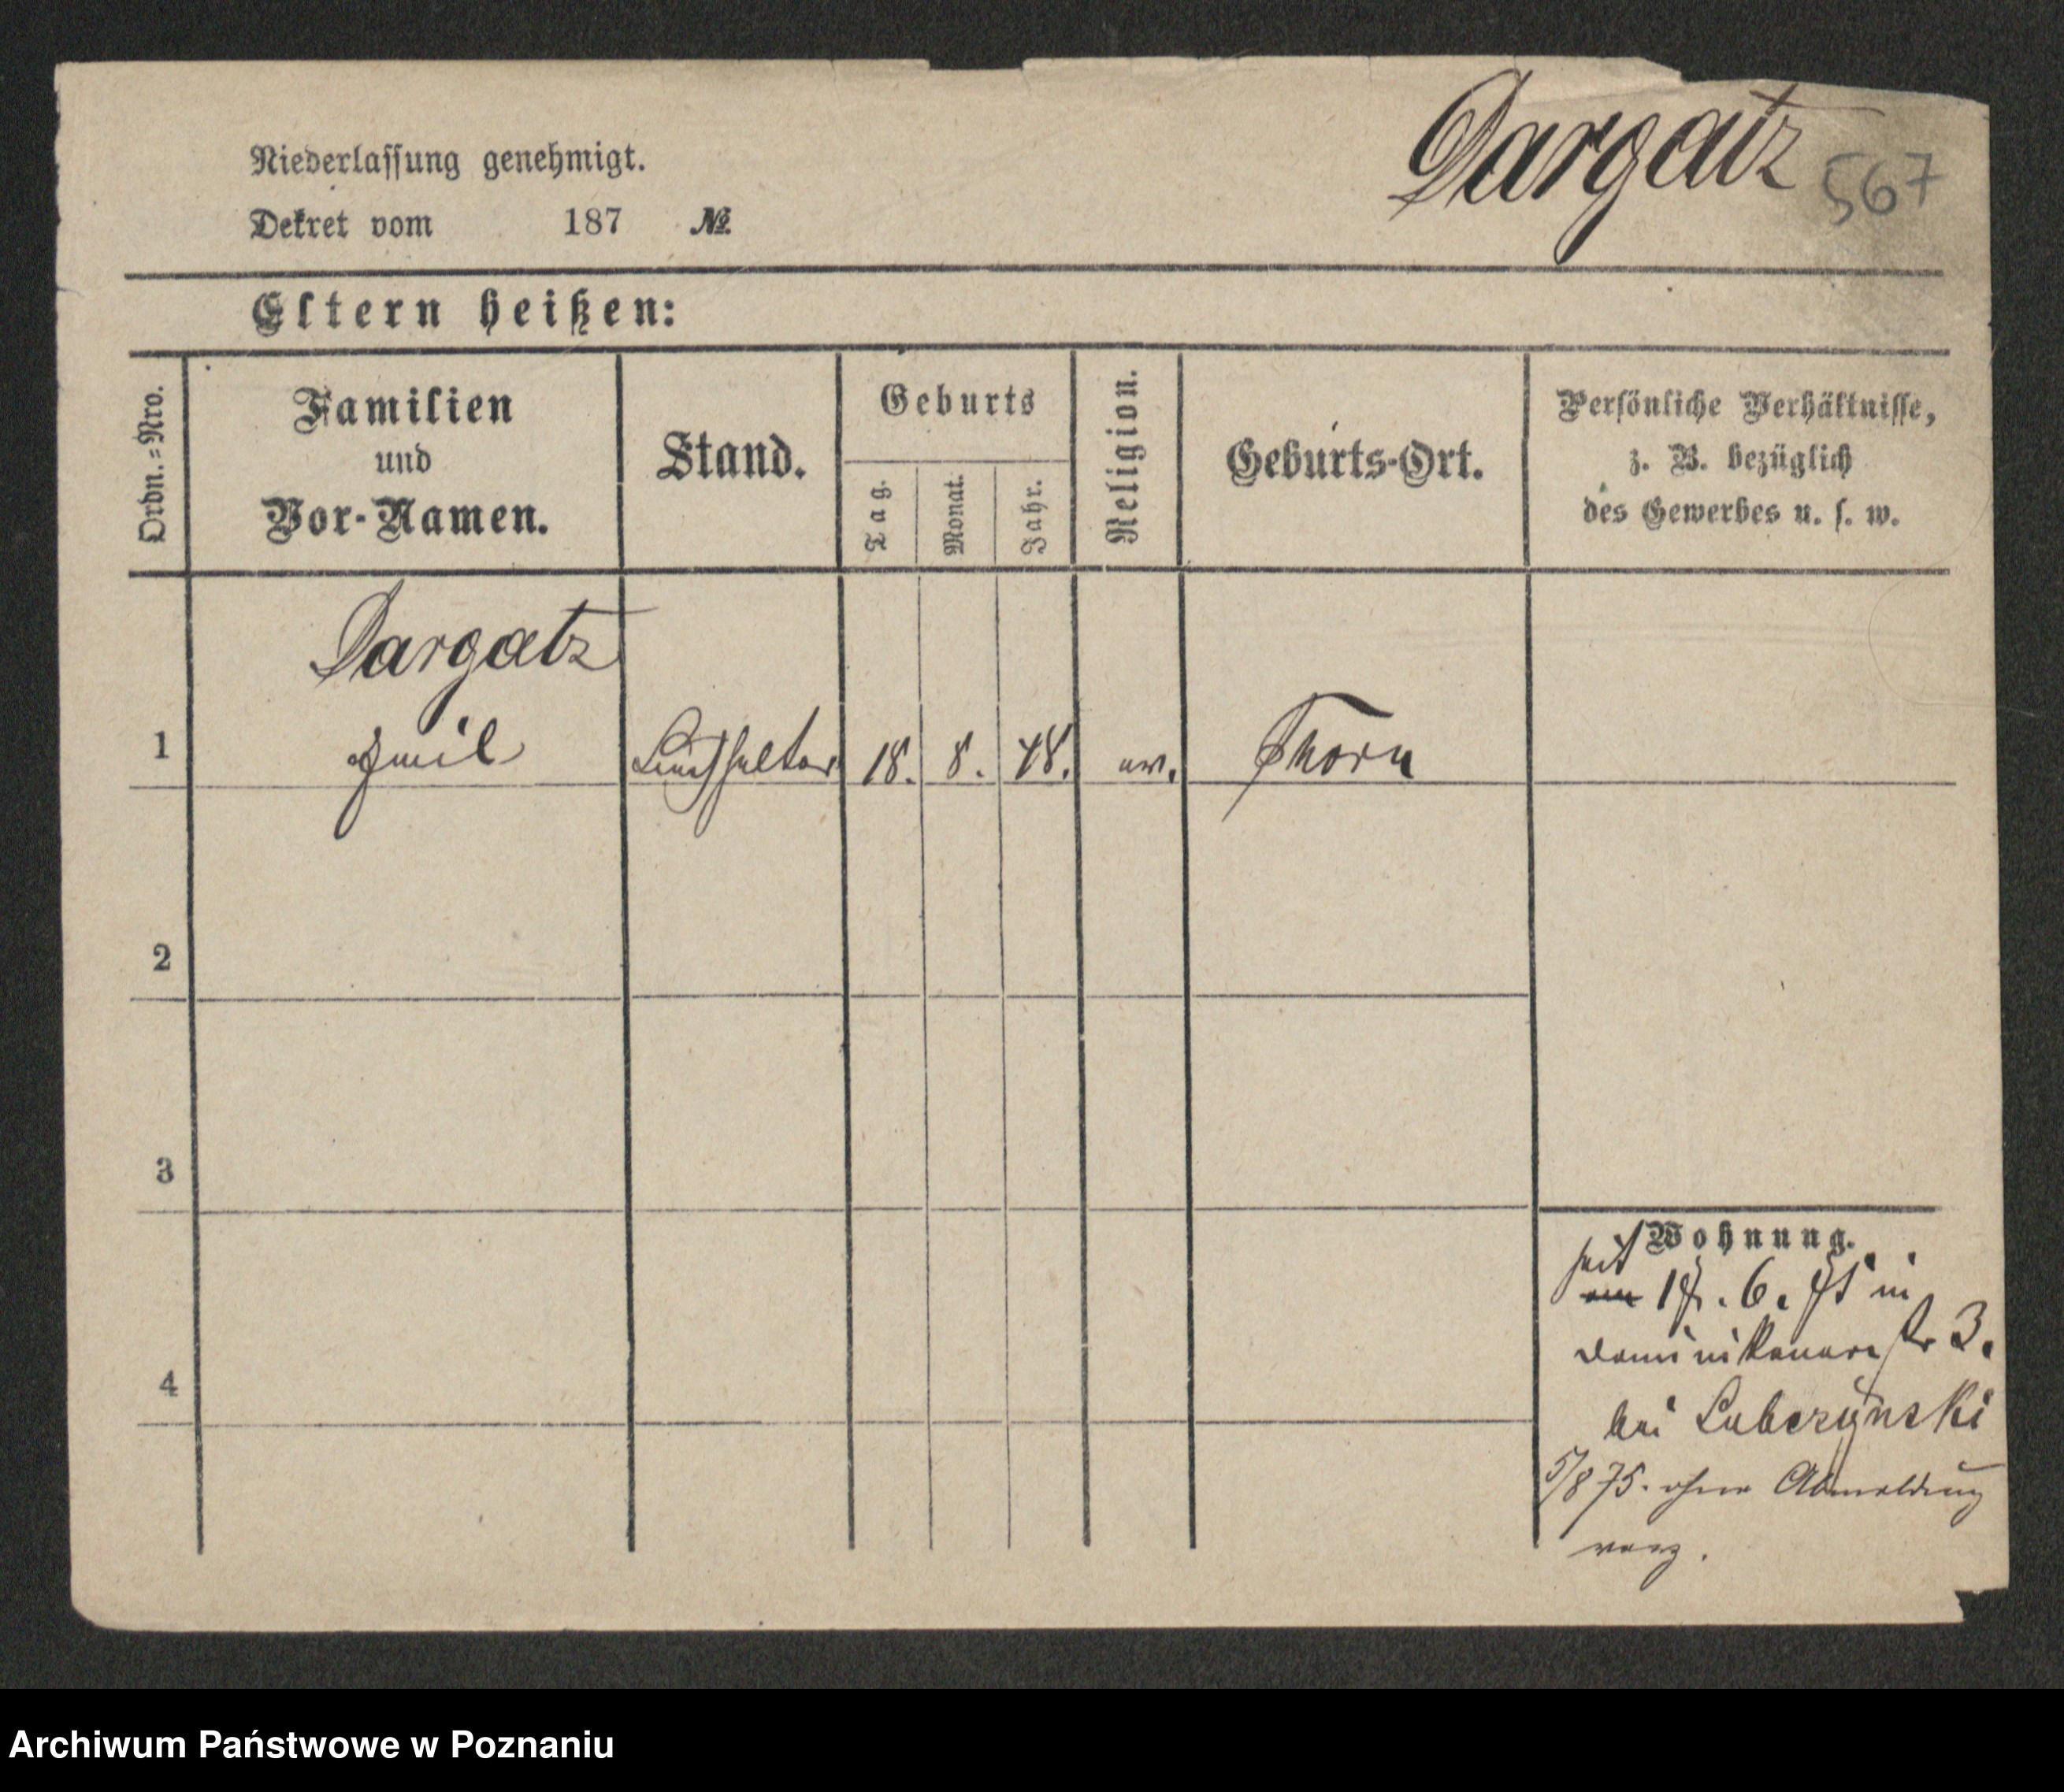 Dargatz 567
Niederlassung genehmigt.
Dekret vom 187 №
Eltern heißen:
Ordn.=Nro.
Familien
und
Vor-Namen.
Stand.
Geburts
Tag.
Monat.
Jahr.
Religion.
Geburts-Ort.
Persönliche Verhältnisse,
z. B. bezüglich
des Gewerbes u. s. w.
Dargatz
1 Emil Buchhalter 18. 8. 48. ev. Thorn
2
3
4
Wohnung.
seit
am 17. 6. 75 in
Dominikanerstr 3.
bei Lubczynski
5/8 75. ohne Abmeldung
verz.
Archiwum Państwowe w Poznaniu